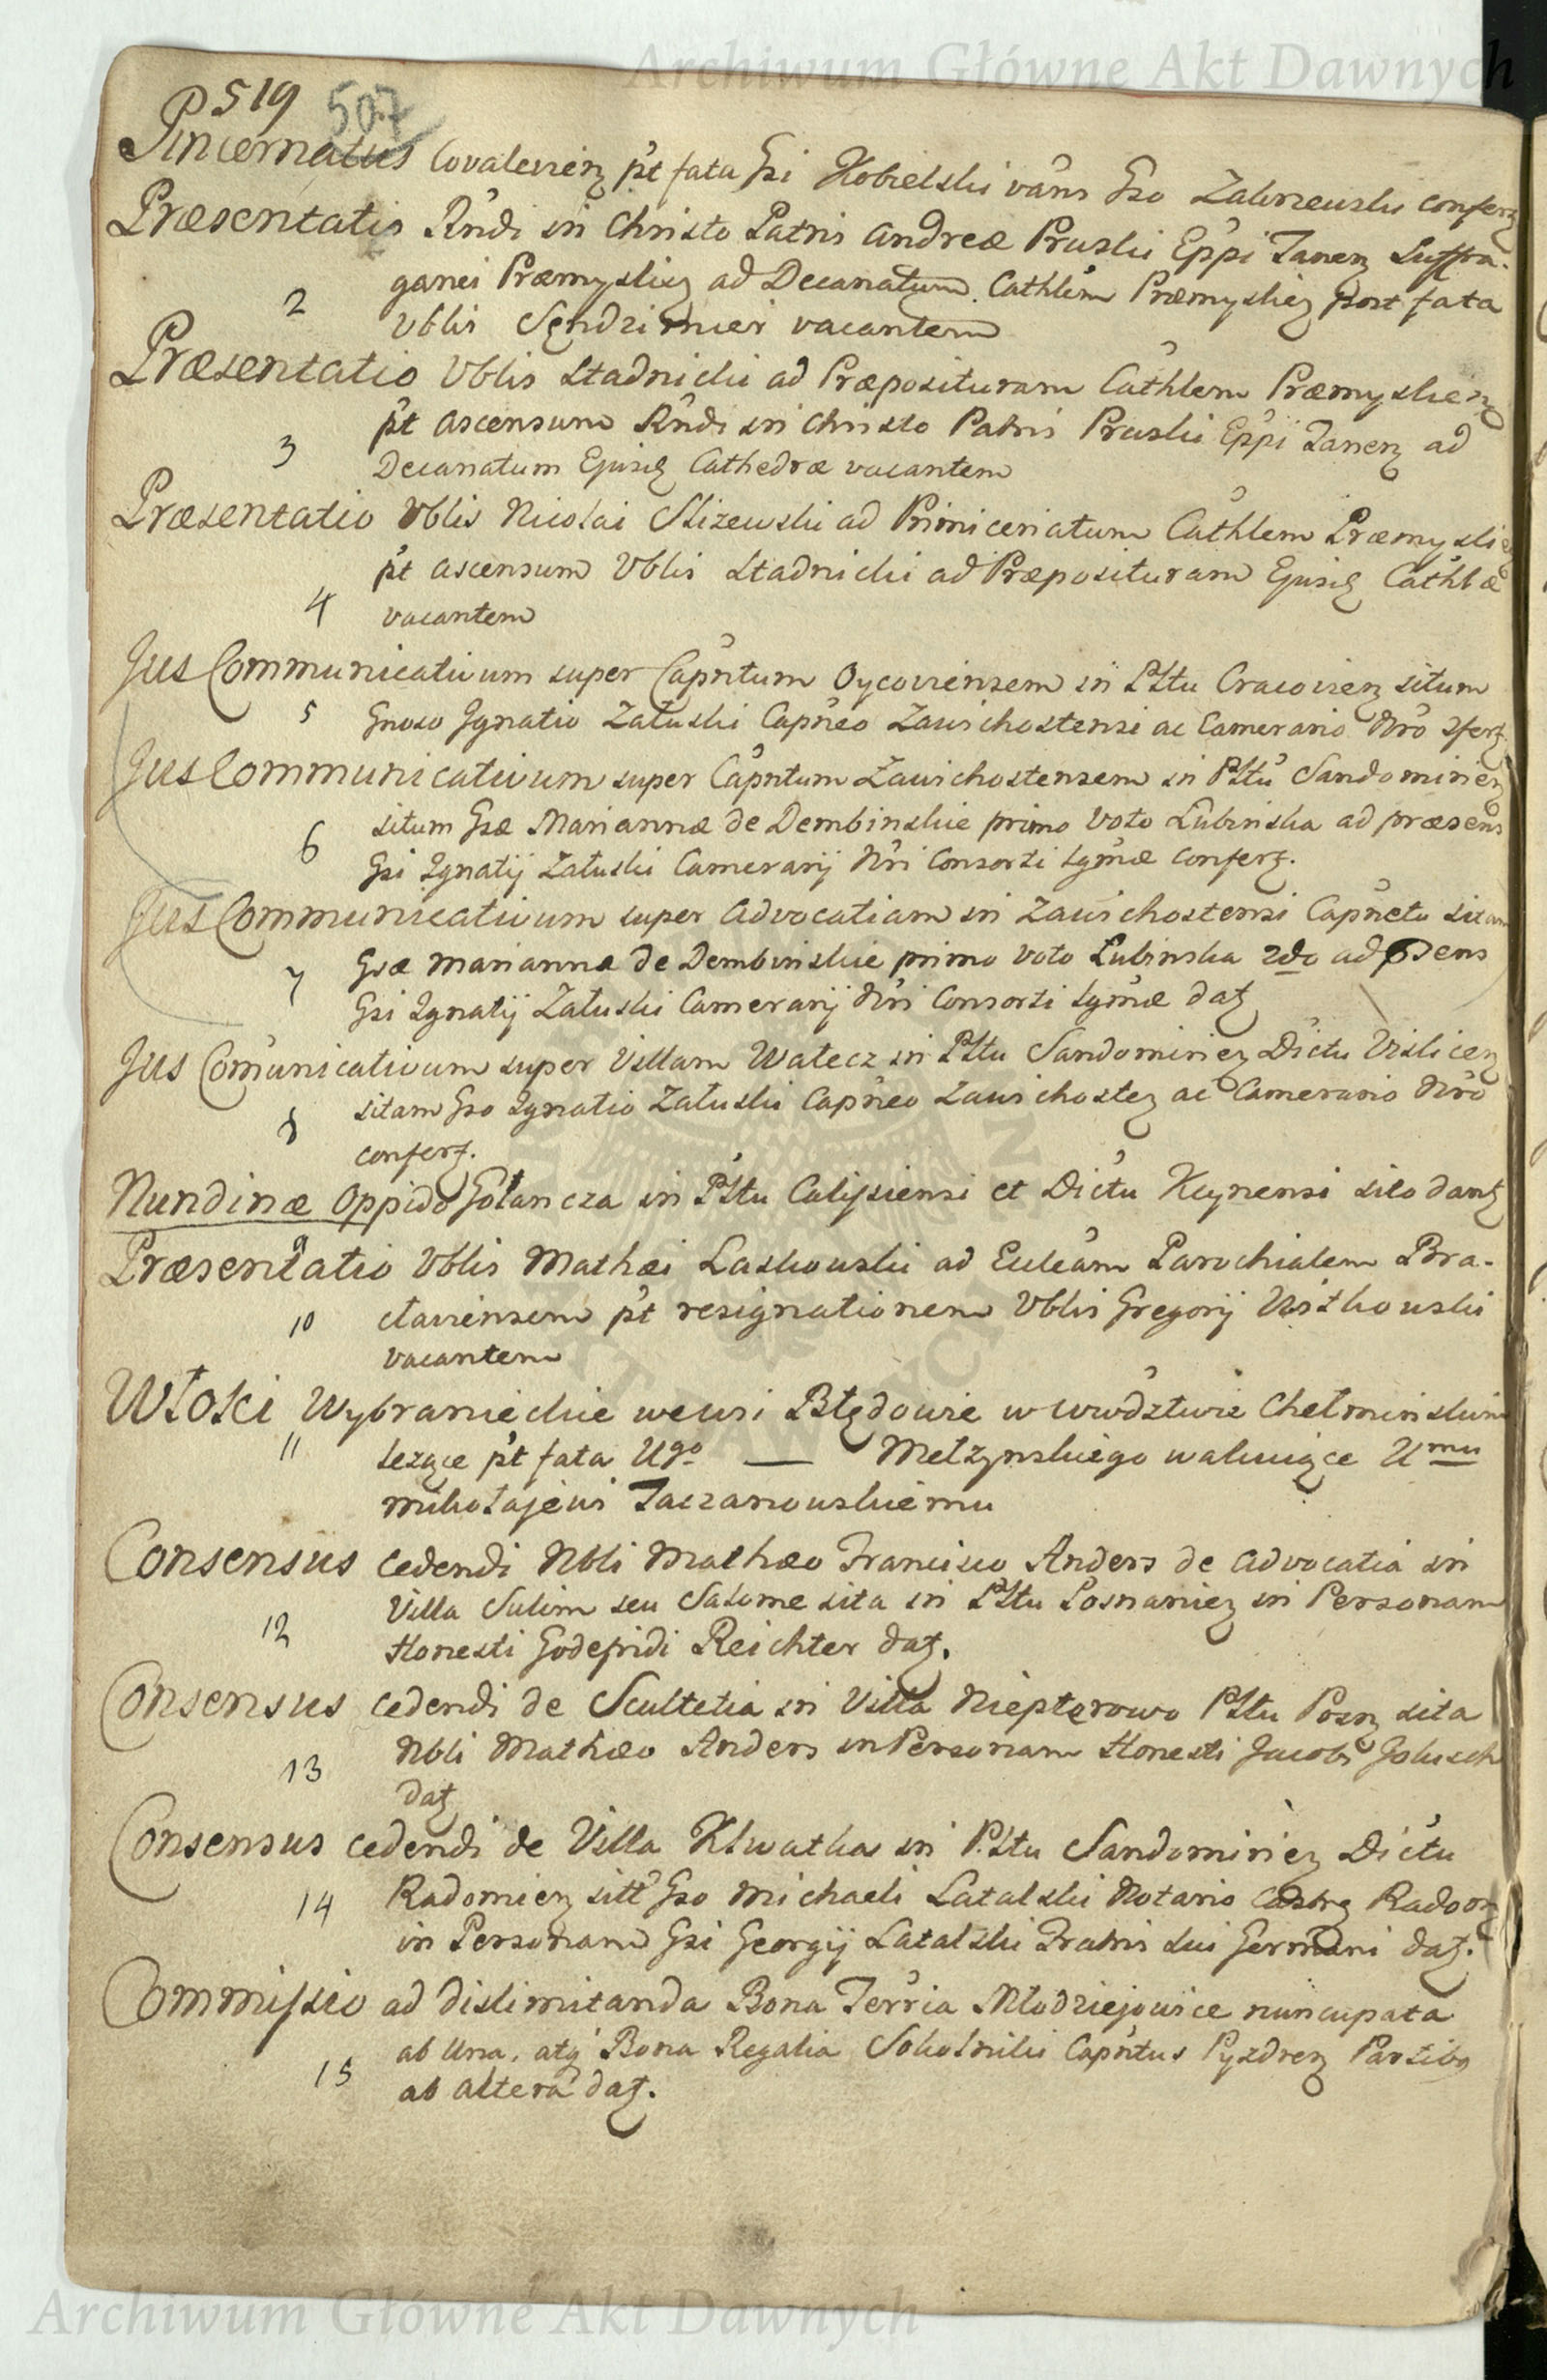 Archiwum Główne Akt Dawnych
519 507
Pincernatus Covalevienz pt fata Gsi Kobielski vans Gso Zakrzewski conferz
Præsentatio Rndi in Christo Patris Andreæ Pruski Eppi Tanenz Suffra-
ganei Præmysliez ad Decanatum Cathlem Præmysliez post fata
2 Vblis Sendzimier vacantem
Præsentatio Vblis Stadnicki ad Præposituram Cathlem Præmyslienz
pt ascensum Rndi in Christo Patris Pruski Eppi Tanenz ad
3 Decanatum Ejusdz Cathedræ vacantem
Præsentatio Vblis Nicolai Slizewski ad Primiceriatum Cathlem Præmysliez
pt ascensum Vblis Stadnicki ad Præposituram Ejusdz Cathlæ
4 vacantem
Jus Communicativum super Capntum Oycoviensem in Plltu Cracovienz situm
5 Gnoso Ignatio Załuski Capneo Zawichostensi ac Camerario Nro Sferz
Jus Communicativum super Capntum Zawichostensem in Plltu Sandomirienz
situm Gsæ Mariannæ de Dembinskie primo voto Łubinska ad præsens
6 Gsi Ignatij Załuski Camerarij Nri Consorti Lgmæ conferz.
Jus Communicativum super Advocatiam in Zawichostensi Capnetu sitam
Gsæ Marianna de Dembinskie primo voto Łubinska 2do ad psens
7 Gsi Ignatij Załuski Camerarij Nri Consorti Lgmæ datz
Jus Comunicativum super Villam Watecz in Plltu Sandomiriez Dictu Vislicenz
sitam Gso Ignatio Załuski Capneo Zawichostez ac Camerario Nro
8 conferz.
Nundinæ Oppido Gołancza in Plltu Calisiensi et Dictu Kcynensi sito dantz
9
Præsentatio Vblis Mathæi Laskouski ad Eccleam Parochialem Bra-
10 claviensem pt resignationem Vblis Gregorij Witkouski
vacantem
Włoki Wybranieckie wewsi Błędowie w wwdztwie Chełminskim
11 lezące pt fata Ugo — Mełzynskiego wakuiące Umu
mikołajewi Zaczanouskiemu
Consensus cedendi Nbli Mathæo Francisco Anders de Advocatia in
Villa Sulim seu Salome sita in Plltu Posnaniez in Personam
12 Honesti Godefridi Reichter datz.
Consensus cedendi de Scultetia in Villa Niepterowo Plltu Posnz sita
Nbli Mathæo Anders in Personam Honesti Jacobi Jolusch
13 datz
Consensus cedendi de Villa Klwatka in Plltu Sandomiriez Dictu
14 Radomienz sitt Gso Michaeli Latalski Notario Castrz Radomz
in Personam Gsi Georgij Latalski Fratris sui Germani datz.
Commissio ad dislimitanda Bona Terria Młodziejowice nuncupata
ab Una, atq Bona Regalia Sokolniki Capntus Pyzdrenz Partibq
15 ab altera datz.
Archiwum Główne Akt Dawnych